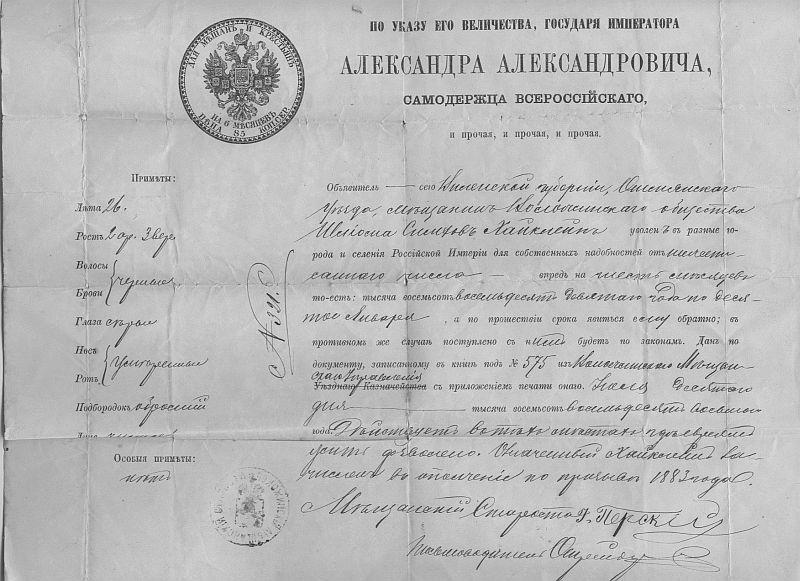 ДЛЯ МѢЩАНЪ И КРЕСТЬЯНЪ
НА 6 МѢСЯЦЕВЪ
ЦѢНА 85 КОП. СЕР.
ПО УКАЗУ ЕГО ВЕЛИЧЕСТВА, ГОСУДАРЯ ИМПЕРАТОРА
АЛЕКСАНДРА АЛЕКСАНДРОВИЧА,
САМОДЕРЖЦА ВСЕРОССІЙСКАГО,
и прочая, и прочая, и прочая.
Примѣты:
Лѣта 26.
Ростъ 2 ар. 3 вер.
Волосы
Брови черные
Глаза сѣрые
Носъ
Ротъ умѣренные
Подбородокъ обросшій
Особыя примѣты:
нѣтъ
№ 321.
Объявитель сего Виленской губерніи, Ошмянскаго
уѣзда, мѣщанинъ Воложинскаго общества
Шлiома Хайклинъ уволенъ въ разные го-
рода и селенія Россійской Имперіи для собственныхъ надобностей отъ нижепи-
саннаго числа впредь на шесть мѣсяцевъ
то-есть: тысяча восемьсотъ восемьдесятъ девятаго года по деся-
тое Января, а по прошествіи срока явиться ему обратно; въ
противномъ же случаѣ поступлено съ нимъ будетъ по законамъ. Данъ по
документу, записанному въ книгѣ подъ № 575 изъ Воложинскаго Мѣщан-
скаго Управленія
Уѣзднаго Казначейства съ приложеніемъ печати онаго. Іюля Десятаго
дня тысяча восемьсотъ восемьдесятъ восьмаго
года. Дѣйствуетъ въ тѣхъ мѣстахъ гдѣ евреямъ
жить дозволено. Означенный Хайклинъ за-
численъ въ ополченіе по призыву 1883 года.
Мѣщанскій Староста Перскій
Письмоводитель